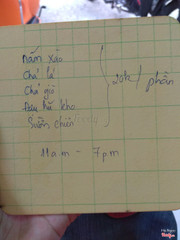 nấm xào
Chả lá
Chả giò
Đậu hũ kho
Sườn chiên
20k/phần
11am - 7pm